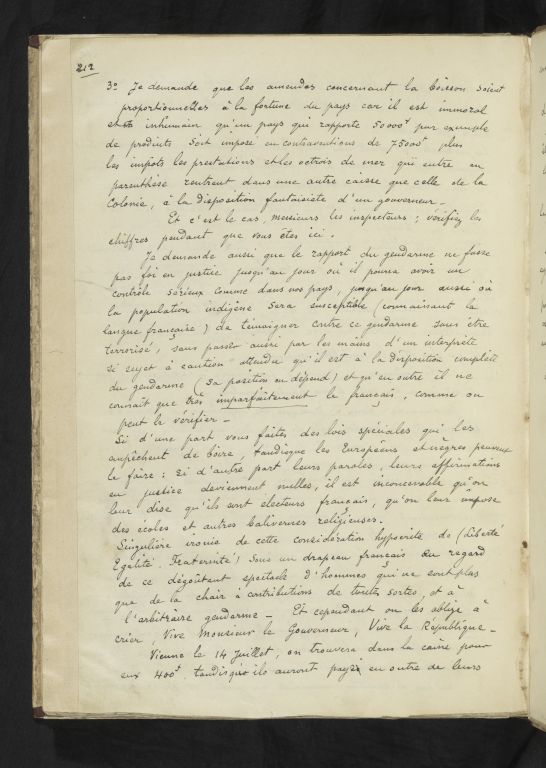 212
3º Je demande que les amendes concernant la boisson soient
proportionnelles à la fortune du pays car il est immoral
et inhumain qu'un pays qui rapporte 50000f par exemple
de produits soit imposé en contraventions de 75000f plus
les impôts les prestations et les octrois de mer qui entre en
parenthèse rentrent dans une autre caisse que celle de la
Colonie, à la disposition fantaisiste d'un gouverneur_
Et c'est le cas, messieurs les inspecteurs ; vérifiez les
chiffres pendant que vous êtes ici.
Je demande aussi que le rapport du gendarme ne fasse
pas foi en justice jusqu'au jour où il pourra avoir un
contrôle sérieux comme dans nos pays, jusqu'au jour aussi où
la population indigène sera susceptible (connaissant la
langue française) de témoigner contre ce gendarme sans être
terrorisé, sans passer aussi par les mains d'un interprète
si sujet à caution attendu qu'il est à la disposition complète
du gendarme (sa position en dépend) et qu'en outre il ne
connait que très imparfaitement le français, comme on
peut le vérifier_
Si d'une part vous faites des lois spéciales qui les
empêchent de boire, tandis que les Européens et nègres peuvent
le faire ; si d'autre part leurs paroles, leurs affirmations
en justice deviennent nulles, il est inconcevable qu'on
leur dise qu'ils sont electeurs français, qu'on leur impose
des écoles et autres balivernes religieuses.
Singulière ironie de cette considération hypocrite de (Liberté
Egalité. Fraternité) sous un drapeau français au regard
de ce dégoûtant spectacle d'hommes qui ne sont plus
que de la chair à contributions de toutes sortes, et à
l'arbitraire gendarme_ Et cependant on les oblige à
crier, Vive Monsieur le Gouverneur, Vive la République_
Vienne le 14 Juillet, on trouvera dans la caisse pour
eux 400f, tandis qu'ils auront payé en outre de leurs